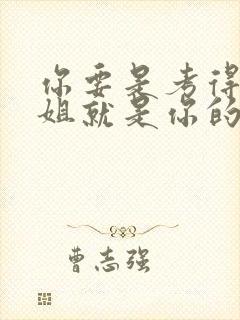 你要是考得
姐就是你的
曹志强